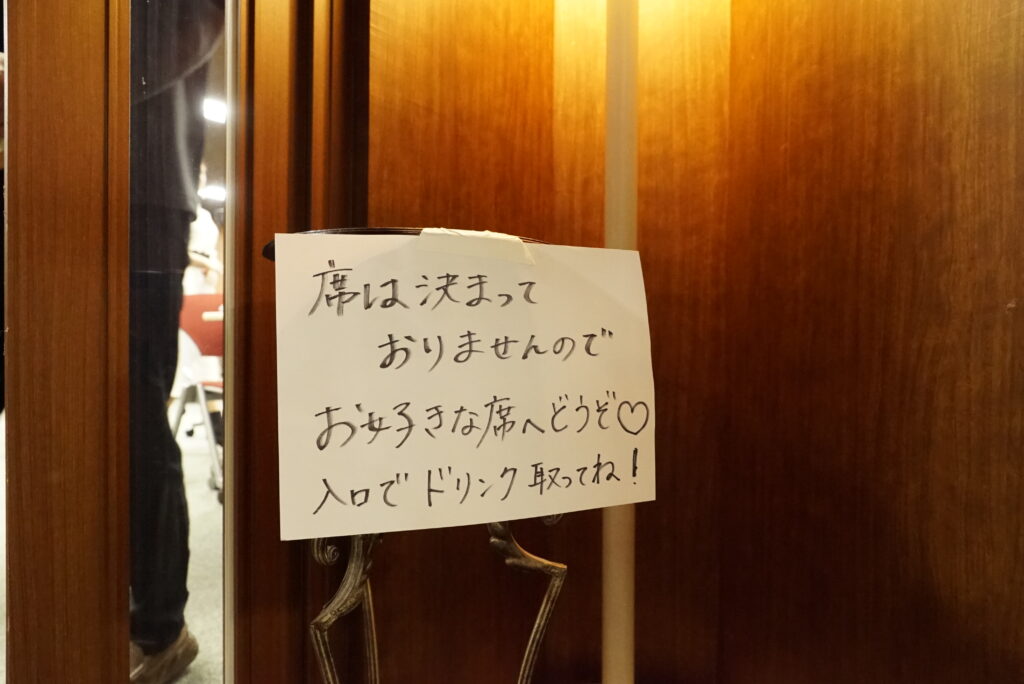 席は決まって
おりませんので
お好きな席へどうぞ♡
入口でドリンク取ってね!